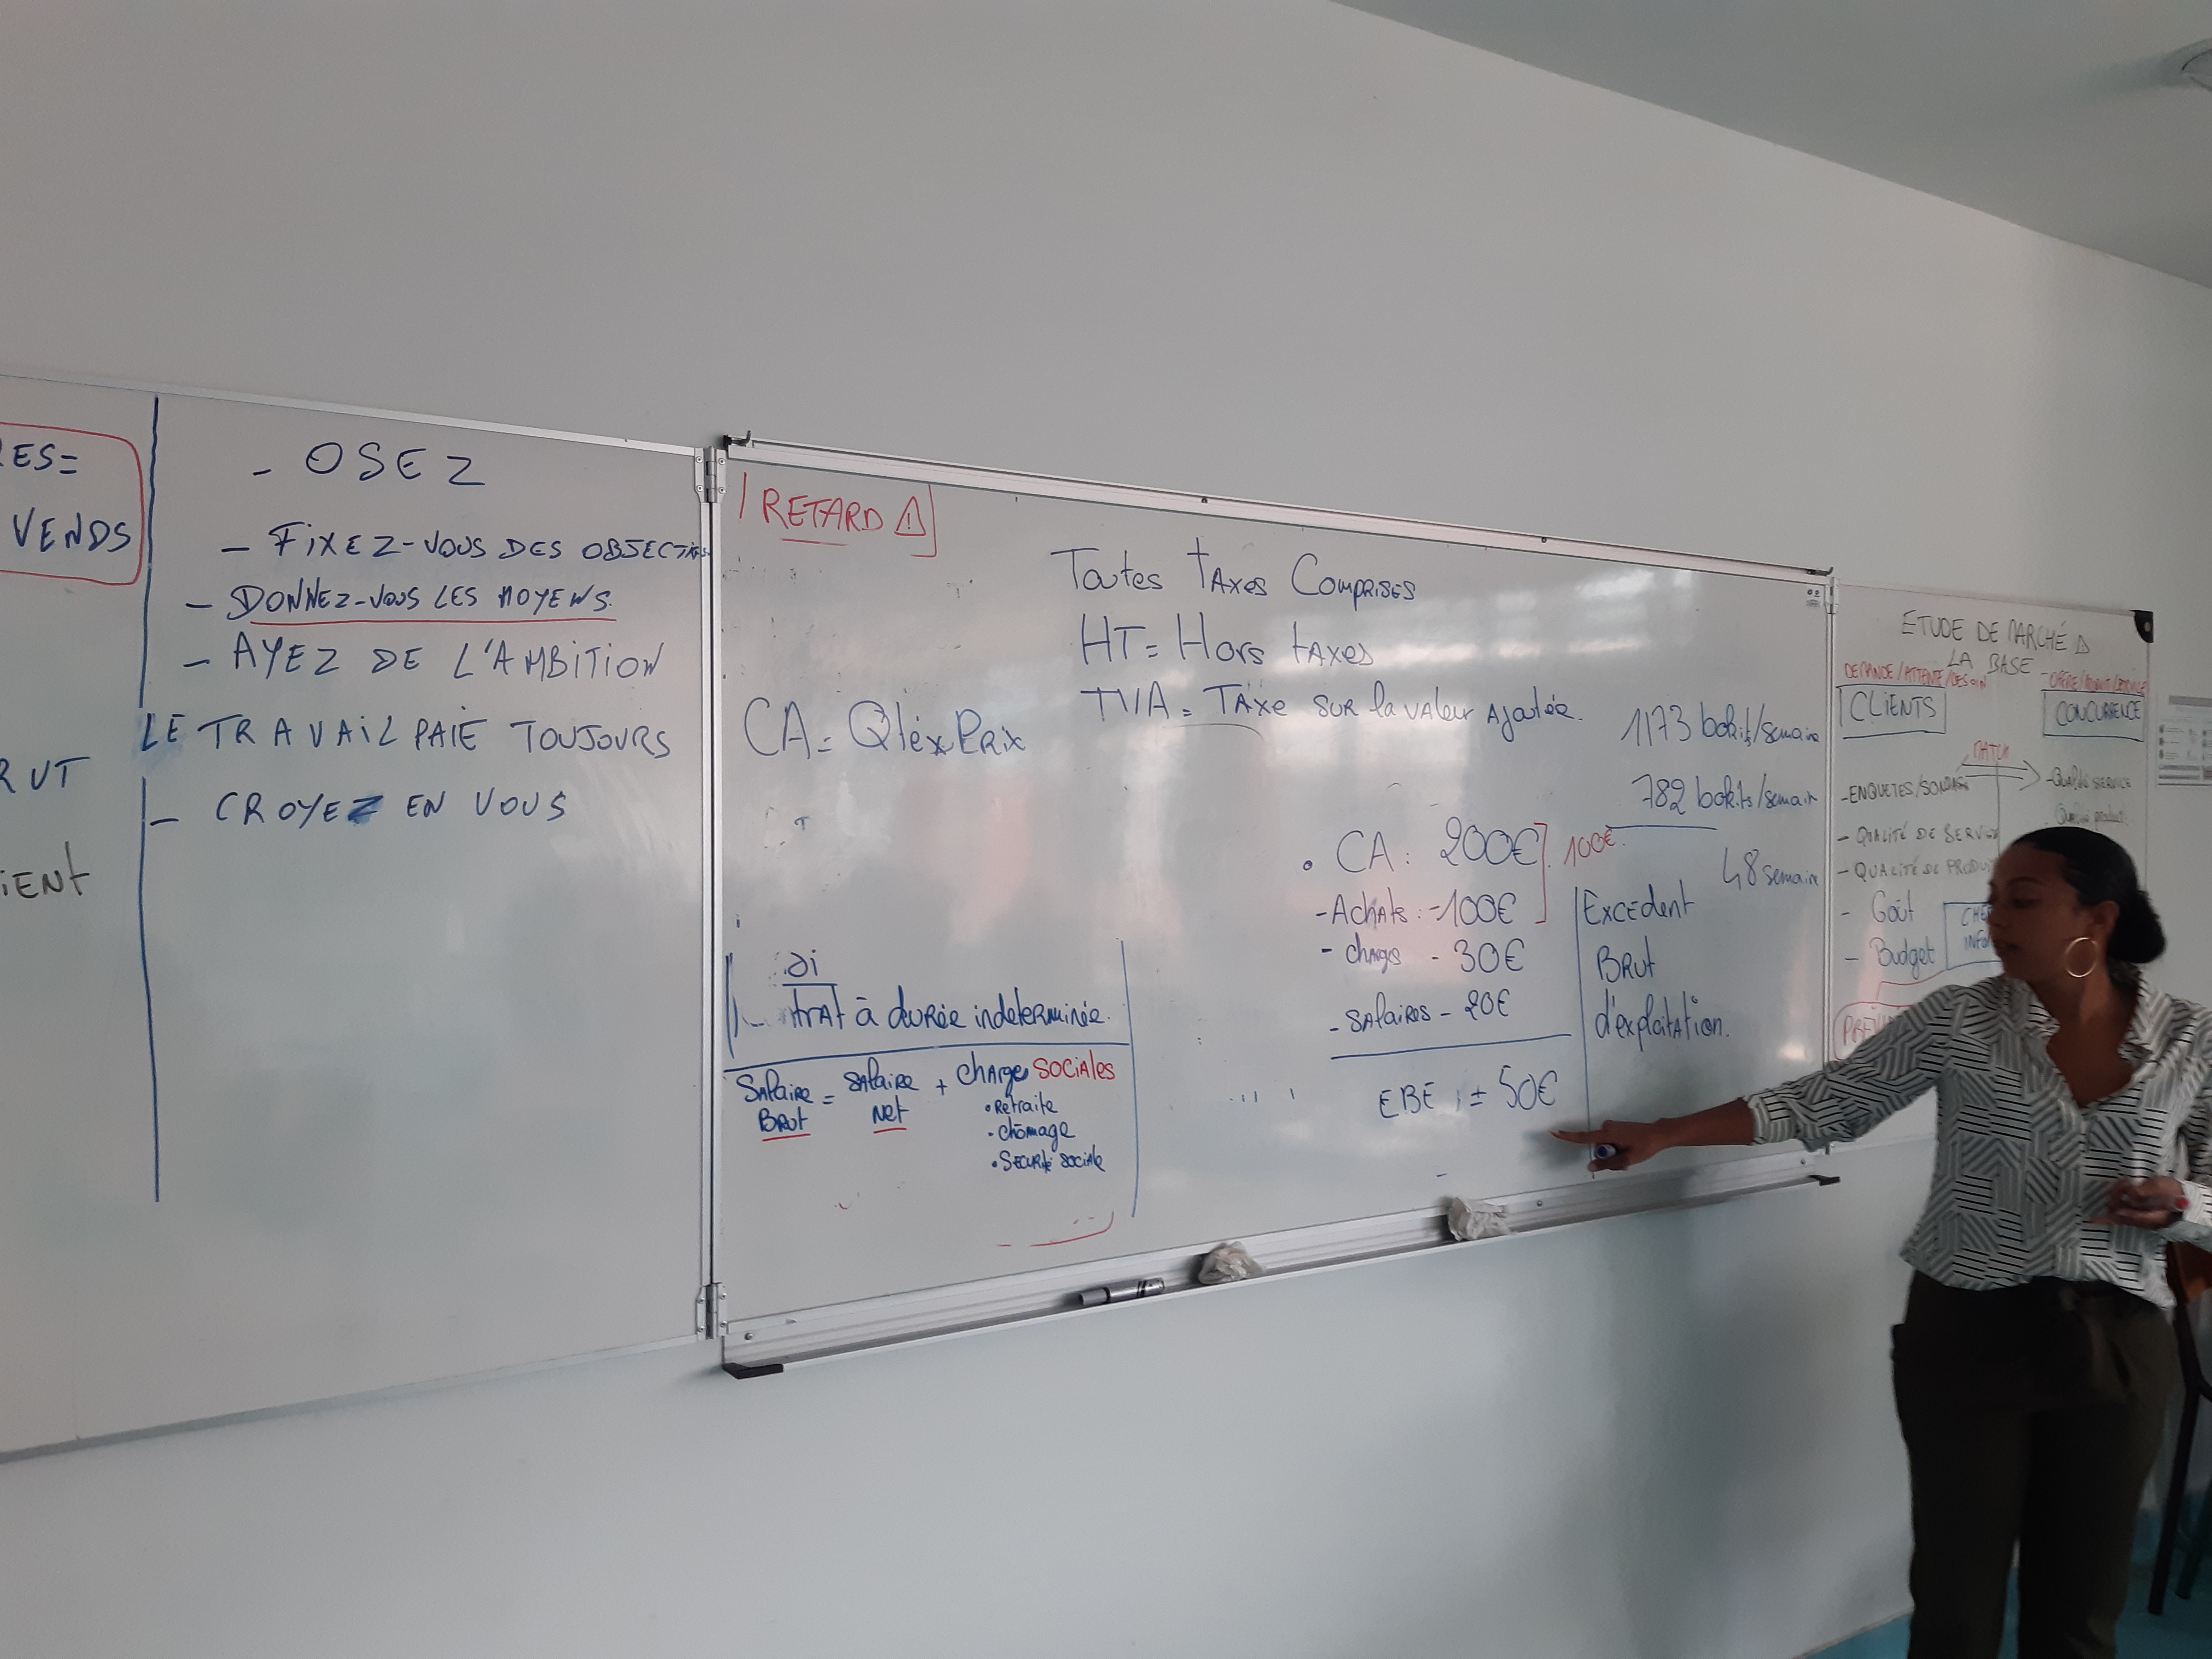 RES=
VENDS
RUT
IENT
- OSEZ
- FiXEZ-VOUS DES OBJECTIFS
- DONNEZ-VOUS LES MOYENS.
- AYEZ DE L'AMBITION
LE TRAVAIL PAIE TOUJOURS
- CROYEZ EN VOUS
RETARD ⚠
Toutes tAxes COMPRISES
HT = Hors tAxes
TVA = TAxe SUR la VAleur Ajoutée.
CA = Qté x PRix
1173 bokits/semaine
782 bokits/semain
48 semaine
• CA : 200€ 100€.
- AchAts : -100€
- chArges - 30€
- SAlAiRes - 20€
EBE ; ± 50€
EXCEDent
BRUt
d'exploitAtion.
di
trAt à duRée indeteRminée.
SAlaiRe BRUt = SAlaiRe Net + ChARges SOCiAles
• Retraite
• Chômage
• SECURité sociAle
ETUDE DE MARCHÉ ⚠
LA BASE
DEMANDE/ATTENTE/BESOIN
CLIENTS
CONCURRENCE
MATCH
- ENQUETES/SONDAGE
- QUALITÉ DE SERVICE
- QUALITÉ DE PRODUI
- Goût
- Budget
- Qualité SERVICE
- Qualité produit